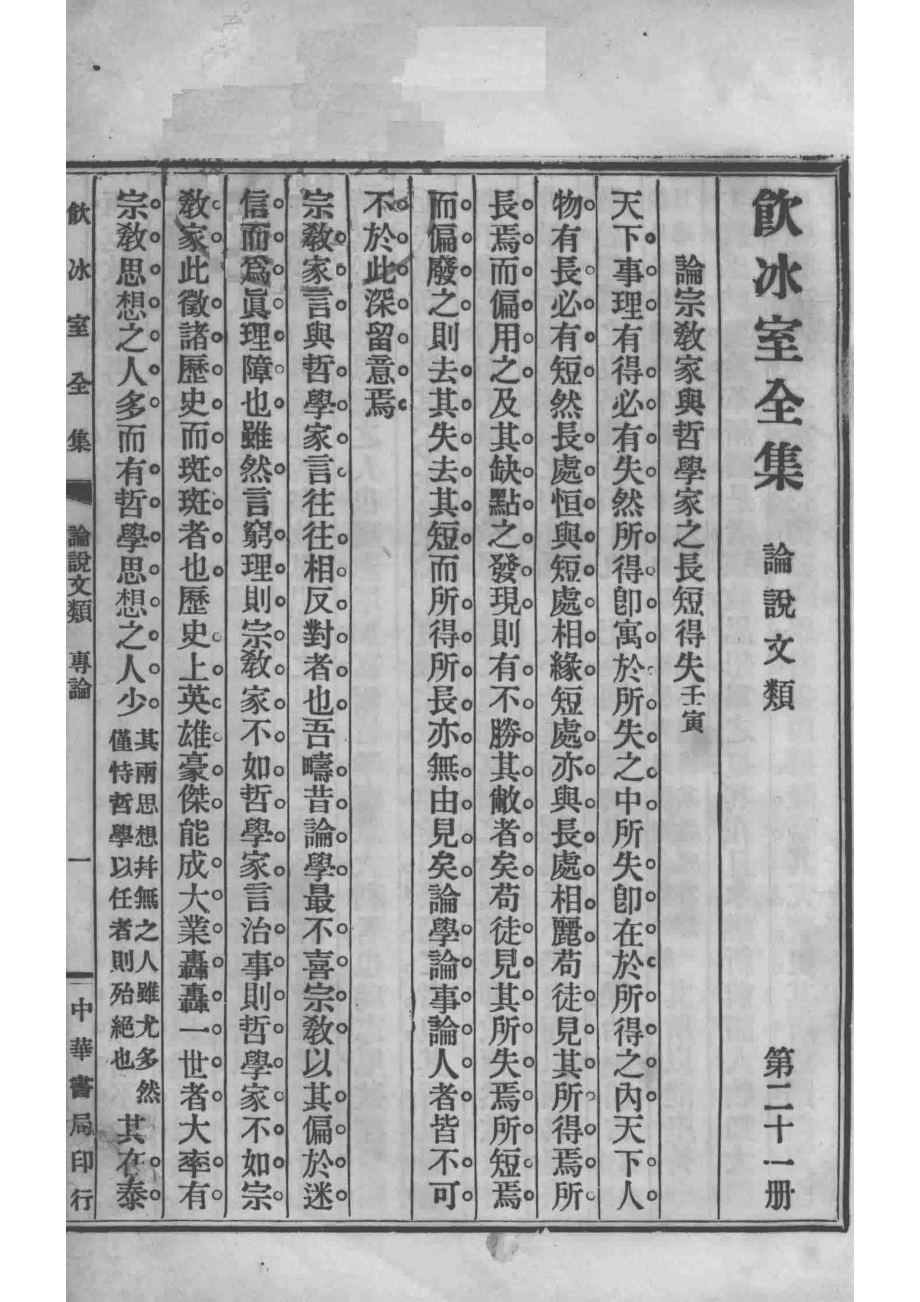 飮冰室全集　論說文類　第二十一册
論宗敎家與哲學家之長短得失壬寅
天下事理有得必有失然所得卽寓於所失之中所失卽在於所得之內天下人
物有長必有短然長處恒與短處相緣短處亦與長處相麗苟徒見其所得焉所
長焉而偏用之及其缺點之發現則有不勝其敝者矣苟徒見其所失焉所短焉
而偏廢之則去其失去其短而所得所長亦無由見矣論學論事論人者皆不可
不於此深留意焉
宗敎家言與哲學家言往往相反對者也吾疇昔論學最不喜宗敎以其偏於迷
信而爲眞理障也雖然言窮理則宗敎家不如哲學家言治事則哲學家不如宗
敎家此徵諸歷史而斑斑者也歷史上英雄豪傑能成大業轟轟一世者大率有
宗敎思想之人多而有哲學思想之人少其兩思想幷無之人雖尤多然僅恃哲學以任者則殆絕也其在泰
飮冰室全集　論說文類　專論　一　中華書局印行